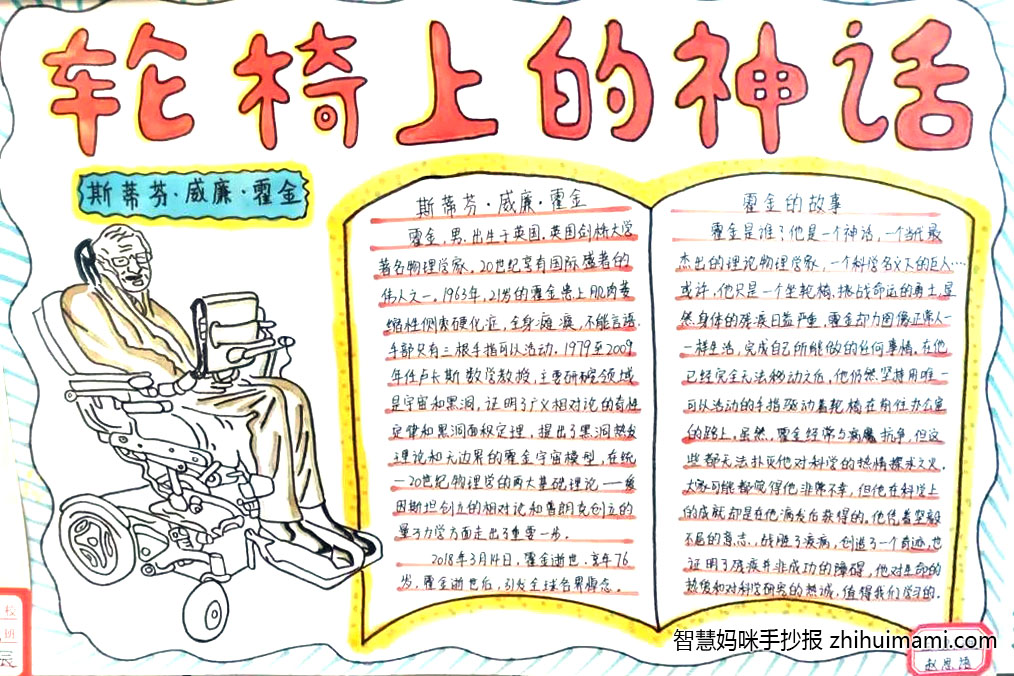 轮椅上的神话
斯蒂芬·威廉·霍金
斯蒂芬·威廉·霍金
霍金,男,出生于英国,英国剑桥大学
著名物理学家,20世纪享有国际盛誉的
伟人之一,1963年,21岁的霍金患上肌肉萎
缩性侧索硬化症,全身瘫痪,不能言语,
手部只有三根手指可以活动.1979至2009
年任卢卡斯数学教授,主要研究领域
是宇宙和黑洞,证明了广义相对论的奇性
定律和黑洞面积定理,提出了黑洞蒸发
理论和无边界的霍金宇宙模型,在统
一20世纪物理学的两大基础理论——爱
因斯坦创立的相对论和普朗克创立的
量子力学方面走出了重要一步.
2018年3月14日,霍金逝世,享年76
岁,霍金逝世后,引发全球各界悼念。
霍金的故事
霍金是谁?他是一个神话,一个当代最
杰出的理论物理学家,一个科学名义下的巨人…
或许,他只是一个坐轮椅、挑战命运的勇士,虽
然身体的残疾日益严重,霍金却力图像正常人一
一样生活,完成自己所能做的任何事情。在他
已经完全无法移动之后,他仍然坚持用唯一
可以活动的手指驱动着轮椅在前往办公室
的路上。虽然,霍金经常与病魔抗争,但这
些都无法扑灭他对科学的热情探求之火。
大家可能都觉得他非常不幸,但他在科学上
的成就却是在他病发后获得的。他凭着坚毅
不屈的意志,战胜了疾病,创造了一个奇迹,也
证明了残疾并非成功的障碍,他对生命的
热爱和对科学研究的热诚,值得我们学习的。
智慧妈咪手抄报 zhihuimami.com
校
班